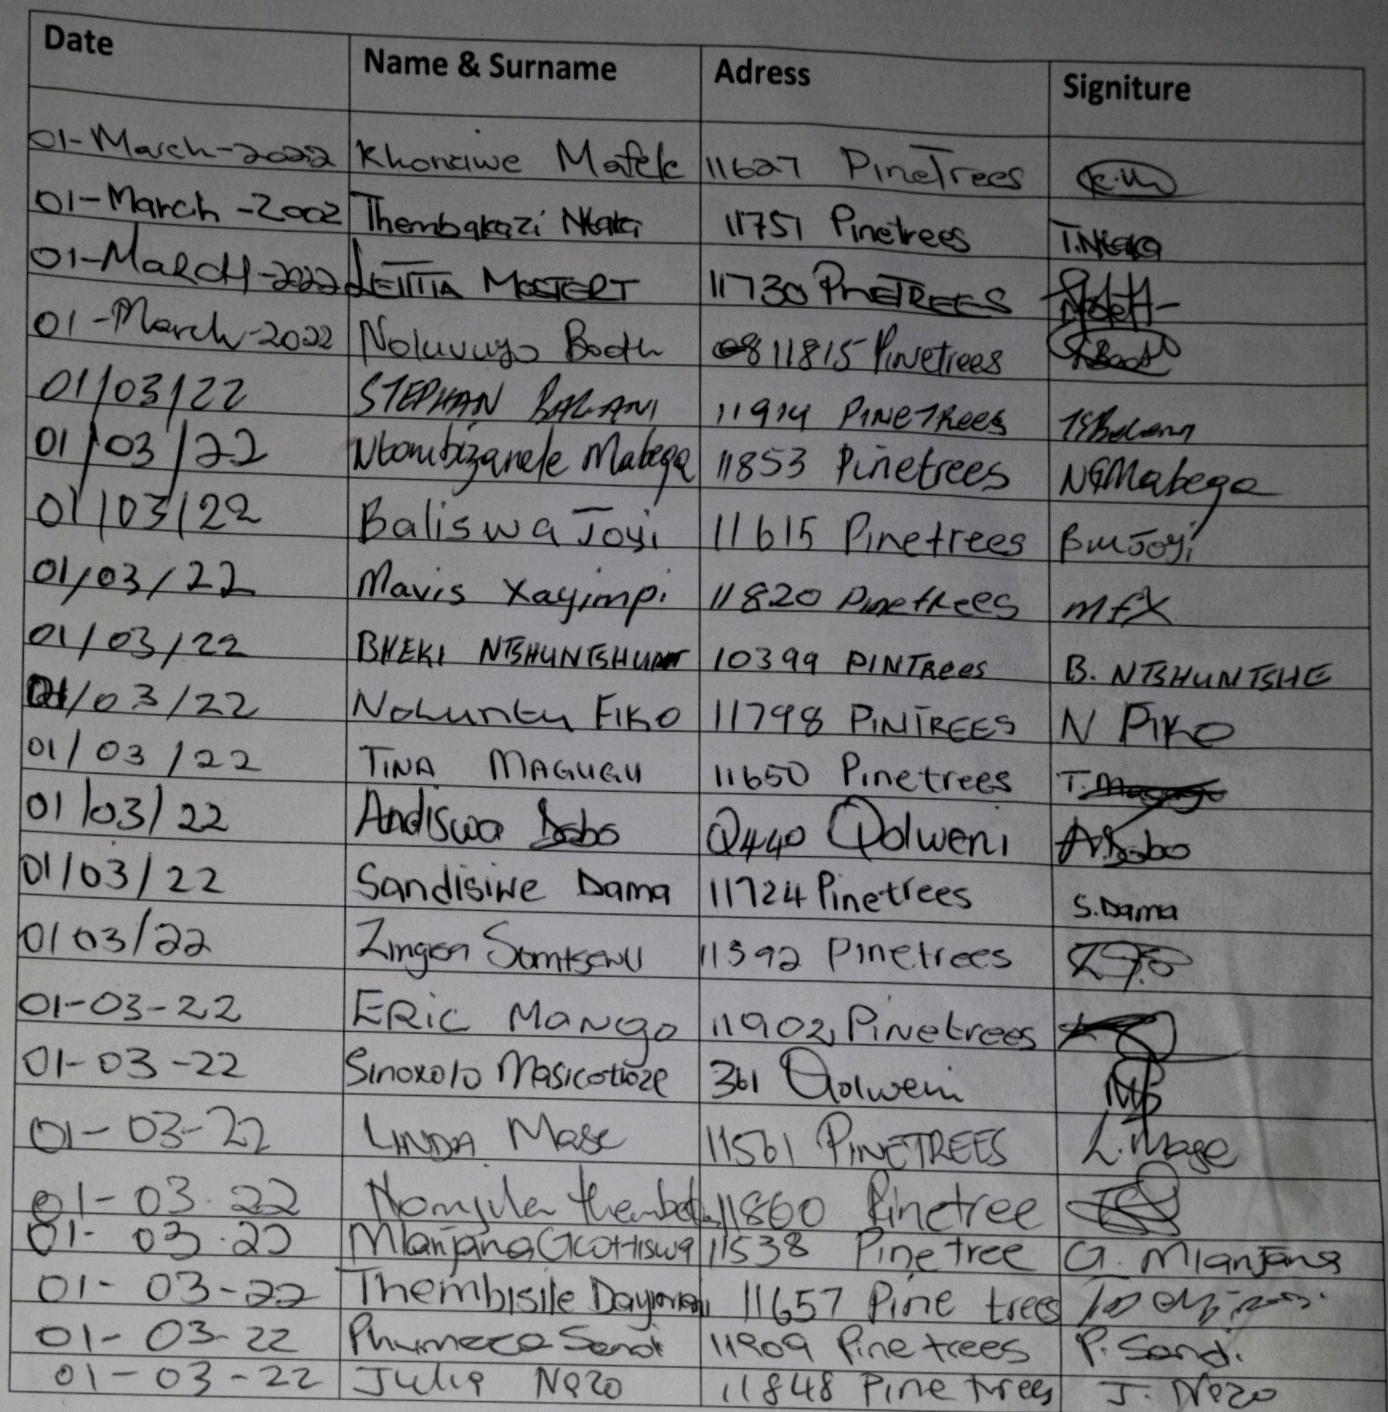 Date Name & Surname Adress Signiture
01-March-2022 Khonciwe Mafele 11627 PineTrees
01-March-2002 Thembakazi Ntaka 11751 Pinetrees T.Ntaka
01-March-2022 LETITIA MOSTERT 11730 PINETREES
01-March-2022 Noluvuyo Booth 11815 Pinetrees
01/03/22 STEPHAN BALANI 11914 PINETREES
01/03/22 Ntombizanele Mabega 11853 Pinetrees NGMabega
01/03/22 Baliswa Joyi 11615 Pinetrees BMJoyi
01/03/22 Mavis Xayimpi 11820 Pinetrees mfX
01/03/22 BHEKI 10399 PINTREES B. NTSHUNTSHE
01/03/22 Nokuntu FIKO 11798 PINTREES N FIKO
01/03/22 TINA MAGUGU 11650 Pinetrees T.
01/03/22 Andiswa Bobo Q440 Qolweni
01/03/22 Sandisiwe Dama 11724 Pinetrees S.Dama
01 03/22 11392 Pinetrees
01-03-22 ERIC Mango 11902, Pinetrees
01-03-22 Sinoxolo 361 Qolweni
01-03-22 LINDA Mase 11561 PINETREES L.Mase
01-03.22 11860 Pinetree
01-03.22 Mlanjana 11538 Pinetree G. Mlanjana
01-03-22 Thembisile 11657 Pine trees
01-03-22 Phumeza Sandi 11909 Pine trees P. Sandi.
01-03-22 Julia Nezo 11848 Pine trees J. Nezo